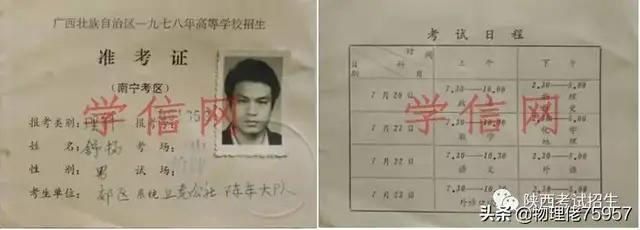 广西壮族自治区一九七八年高等学校招生
准考证
(南宁考区)
学信网
报考类别: 理科
姓名: 舒杨 考场:
性别: 男 试场:
考生单位: 郊区系统
考试日程
时间
科目
日别
上午
下午
7月20日
7.30—10.00
政
2.30—5.00
物理
历史
学信网
7月21日
7.30—10.00
数学
2.30—5.00
化学
地理
7月22日
7.30—10.00
语文
2.30—5.00
外语
7月23日
7.30
陕西考试招生
头条 @物理佬75957